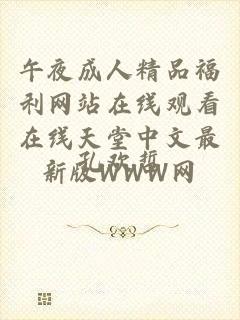 午夜成人精品福
利网站在线观看
在线天堂中文最
新版WWW网
孔欢哲